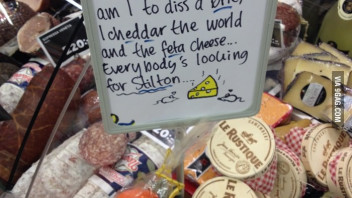 am I to diss a brie,
I cheddar the world
and the feta cheese...
Everybody's looking
for Stilton...
LE RUSTIQUE
LE RUSTIQUE
VIA 9GAG.COM